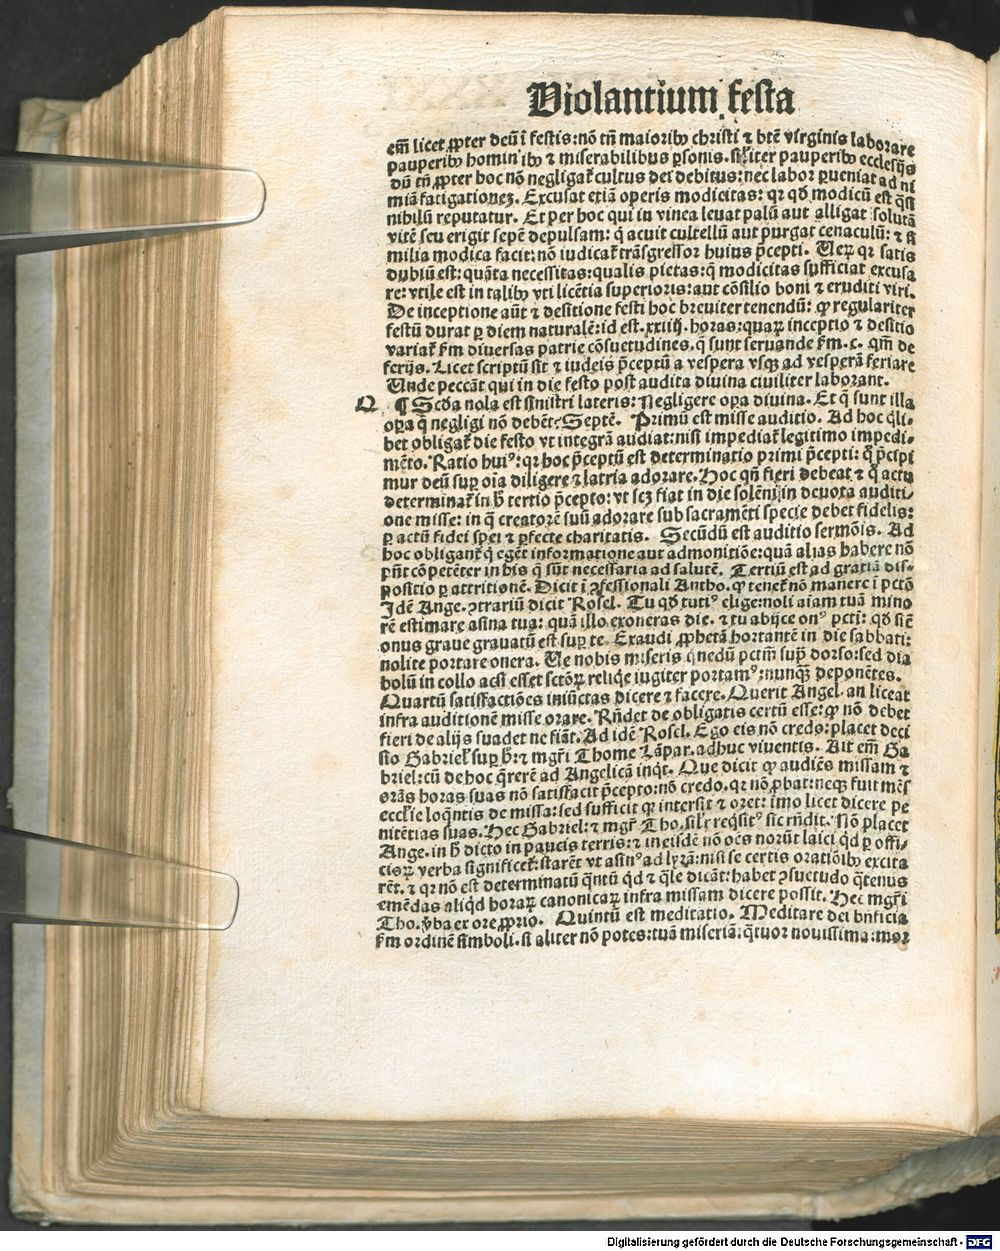 Violantium festa
em̄ licet ꝓpter deū ī festis: nō tñ maioribꝰ christi ⁊ btē virginis laborare
pauperibꝰ hominibꝰ ⁊ miserabilibus ꝑsonis. sil̄iter pauperibꝰ ecclesijs
dū tñ ꝓpter hoc nō negligat̄ cultus dei debitus: nec labor ꝑueniat ad ni
miā fatigationeꝫ. Excusat etiā operis modicitas: qꝛ qd̄ modicū est q̄si
nihilū reputatur. Et per hoc qui in vinea leuat palū aut alligat solutā
vitē seu erigit sepē depulsam: q̄ acuit cultellū aut purgat cenaculū: ⁊ si
milia modica facit: nō iudicat̄ trāsgressor huius p̄cepti. Veꝝ qꝛ satis
dubiū est: quāta necessitas: qualis pietas: q̄ modicitas sufficiat excusa
re: vtile est in talibꝰ vti licētia superioris: aut cōsilio boni ⁊ eruditi viri.
De inceptione aūt ⁊ desitione festi hoc breuiter tenendū: ꝙ regulariter
festū durat ꝑ diem naturalē: id est. xxiiij. horas: quaꝝ inceptio ⁊ desitio
variat̄ ẜm diuersas patrie cōsuetudines. q̄ sunt seruande ẜm. c. qm̄ de
ferijs. Licet scriptū sit ⁊ iudeis p̄ceptū a vespera vsqꝫ ad vesperā feriare
Unde peccāt qui in die festo post audita diuina ciuiliter laborant.
Q ¶ Scd̄a nola est sinistri lateris: Negligere oꝑa diuina. Et q̄ sunt illa
oꝑa q̄ negligi nō debēt: Septē. Primū est misse auditio. Ad hoc q̄li-
bet obligat̄ die festo vt integrā audiat: nisi impediat̄ legitimo impedi-
mēto. Ratio huiꝰ: qꝛ hoc p̄ceptū est determinatio primi p̄cepti: q̄ p̄cipi
mur deū suꝑ oīa diligere ⁊ latria adorare. Hoc qn̄ fieri debeat ⁊ q̄ actu
determinat̄ in h̄ tertio p̄cepto: vt scꝫ fiat in die solēni in deuota auditi-
one misse: in q̄ creatorē suū adorare sub sacramēti specie debet fidelis:
ꝑ actū fidei spei ⁊ ꝑfecte charitatis. Secūdū est auditio sermōis. Ad
hoc obligant̄ q̄ egēt informatione aut admonitiōe: quā alias habere nō
pn̄t cōpetēter in his q̄ sūt necessaria ad salutē. Tertiū est ad gratiā dis-
positio ꝑ attritionē. Dicit ī ꝯfessionali Antho. ꝙ tenet̄ nō manere ī pctō
Idē Ange. ꝯtrariū dicit Rosel. Tu qd̄ tutiꝰ elige: noli aīam tuā mino
rē estimare asina tua: quā illo exoneras die. ⁊ tu abijce onꝰ pcti: qd̄ sic̄
onus graue grauatū est suꝑ te. Exaudi ꝓphetā hortantē in die sabbati:
nolite portare onera. Ve nobis miseris q̄ nedū pctm̄ suꝑ dorso: sed dia
bolū in collo acsi esset sctōꝝ reliq̄e iugiter portamꝰ: nunqꝫ deponētes.
Quartū satisfactiōes iniūctas dicere ⁊ facere. Querit Angel. an liceat
infra auditionē misse orare. Rn̄det de obligatis certū esse: ꝙ nō debet
fieri de alijs suadet ne fiāt. Ad idē Rosel. Ego eis nō credo: placet deci
sio Gabriel̄ suꝑ h̄: ⁊ mgr̄i Thome Lāpar. adhuc viuentis. Ait em̄ Ga
briel: cū de hoc q̄rerē ad Angelicā inqt. Que dicit ꝙ audiēs missam ⁊
orās horas suas nō satisfacit p̄cepto: nō credo. qꝛ nō ꝓbat: neqꝫ fuit mēs
eccl̄ie loq̄ntis de missa: sed sufficit ꝙ intersit ⁊ oret: imo licet dicere pe
nitētias suas. Hec Gabriel: ⁊ mgr̄ Tho. sil̄r reqsitꝰ sic rn̄dit. Nō placet
Ange. in h̄ dicto in paucis terris: ⁊ in eisdē nō oēs norūt laici qd̄ ꝑ offi-
cioꝝ verba significet̄: starēt vt asinꝰ ad lyrā: nisi se certis oratiōibꝰ excita
rēt. ⁊ qꝛ nō est determinatū q̄ntū qd̄ ⁊ q̄le dicāt: habet ꝯsuetudo q̄tenus
emēdas aliqd̄ horaꝝ canonicaꝝ infra missam dicere possit. Hec mgr̄i
Tho. v̄ba ex ore ꝓprio. Quintū est meditatio. Meditare dei bn̄ficia
ẜm ordinē simboli. si aliter nō potes: tuā miseriā: q̄tuor nouissima: moꝛ
Digitalisierung gefördert durch die Deutsche Forschungsgemeinschaft - DFG